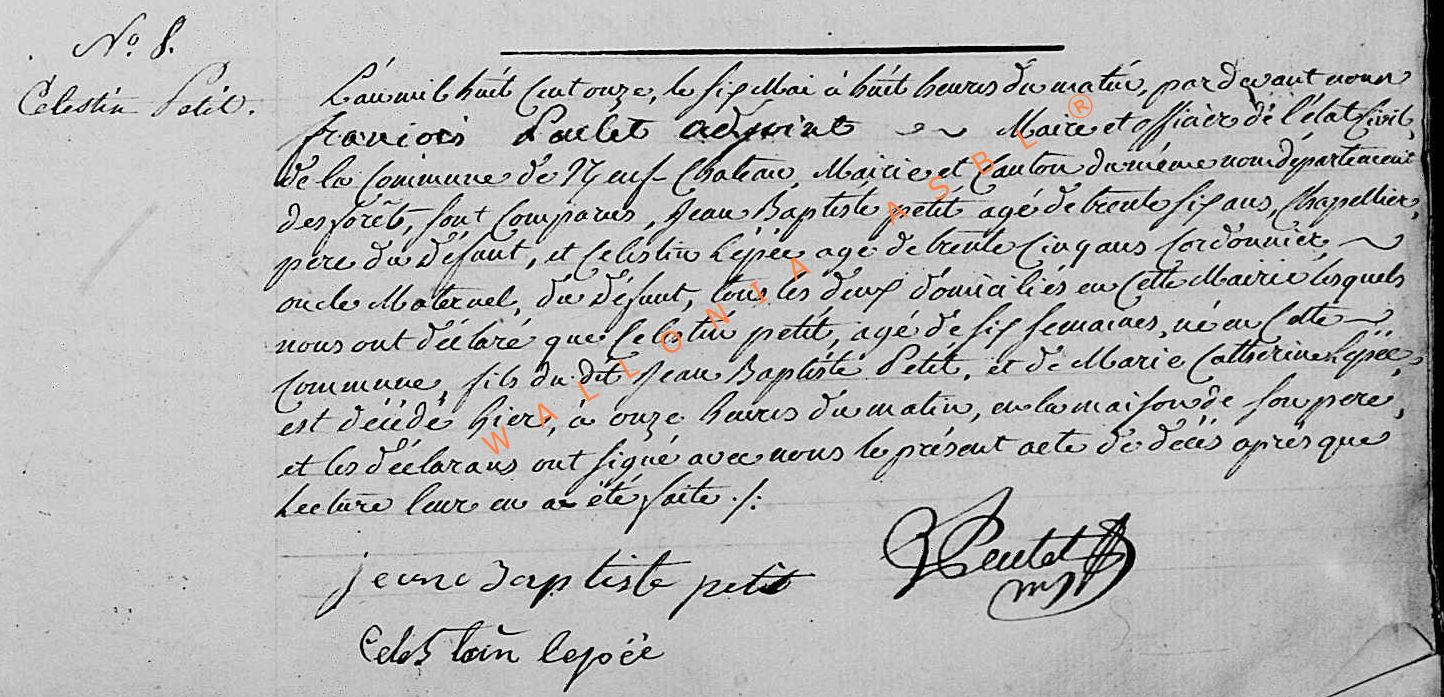 No 8.
Celestin Petit.
L'an mil huit cent onze, le six Mai à huit heures du matin, par devant nous
françois Poulet adjoint Maire et officier de l'état Civil,
de la Commune de Neuf Chateau, Mairie et Canton du même nom département
des forêts, sont Comparus, Jean Baptiste petit agé de trente six ans, Chapellier,
pere du défunt, et Celestin Lepée agé de trente Cinq ans Cordonnier
oncle Maternel, du défunt, tous les deux domiciliés en Cette Mairie lesquels
nous ont déclaré que Celestin petit, agé de six semaines, né en Cette
Commune, fils du dit Jean Baptiste Petit, et de Marie Catherine Lepée,
est décédé hier, à onze heures du matin, en la maison de son pere,
et les déclarans ont signé avec nous le présent acte de décès après que
Lecture leur en a été faite ./.
jean Baptiste petit
Celestin lepée
WALLONIA ASBL ®